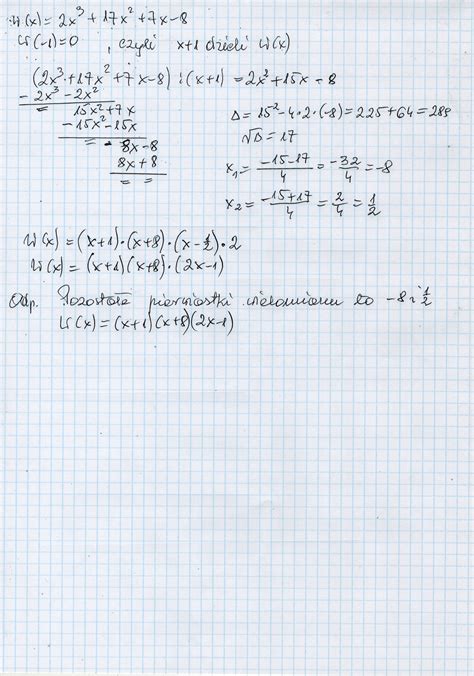 W(x) = 2x³ + 17x² + 7x - 8
W(-1) = 0 , czyli x+1 dzieli W(x)
(2x³ + 17x² + 7x - 8) : (x+1) = 2x² + 15x - 8
- 2x³ - 2x²
= 15x² + 7x
- 15x² - 15x
= - 8x - 8
8x + 8
= =
Δ = 15² - 4·2·(-8) = 225 + 64 = 289
√Δ = 17
x₁ = (-15-17)/4 = -32/4 = -8
x₂ = (-15+17)/4 = 2/4 = 1/2
W(x) = (x+1)·(x+8)·(x-1/2)·2
W(x) = (x+1)(x+8)·(2x-1)
Odp. Pozostałe pierwiastki wielomianu to -8 i 1/2
W(x) = (x+1)(x+8)(2x-1)